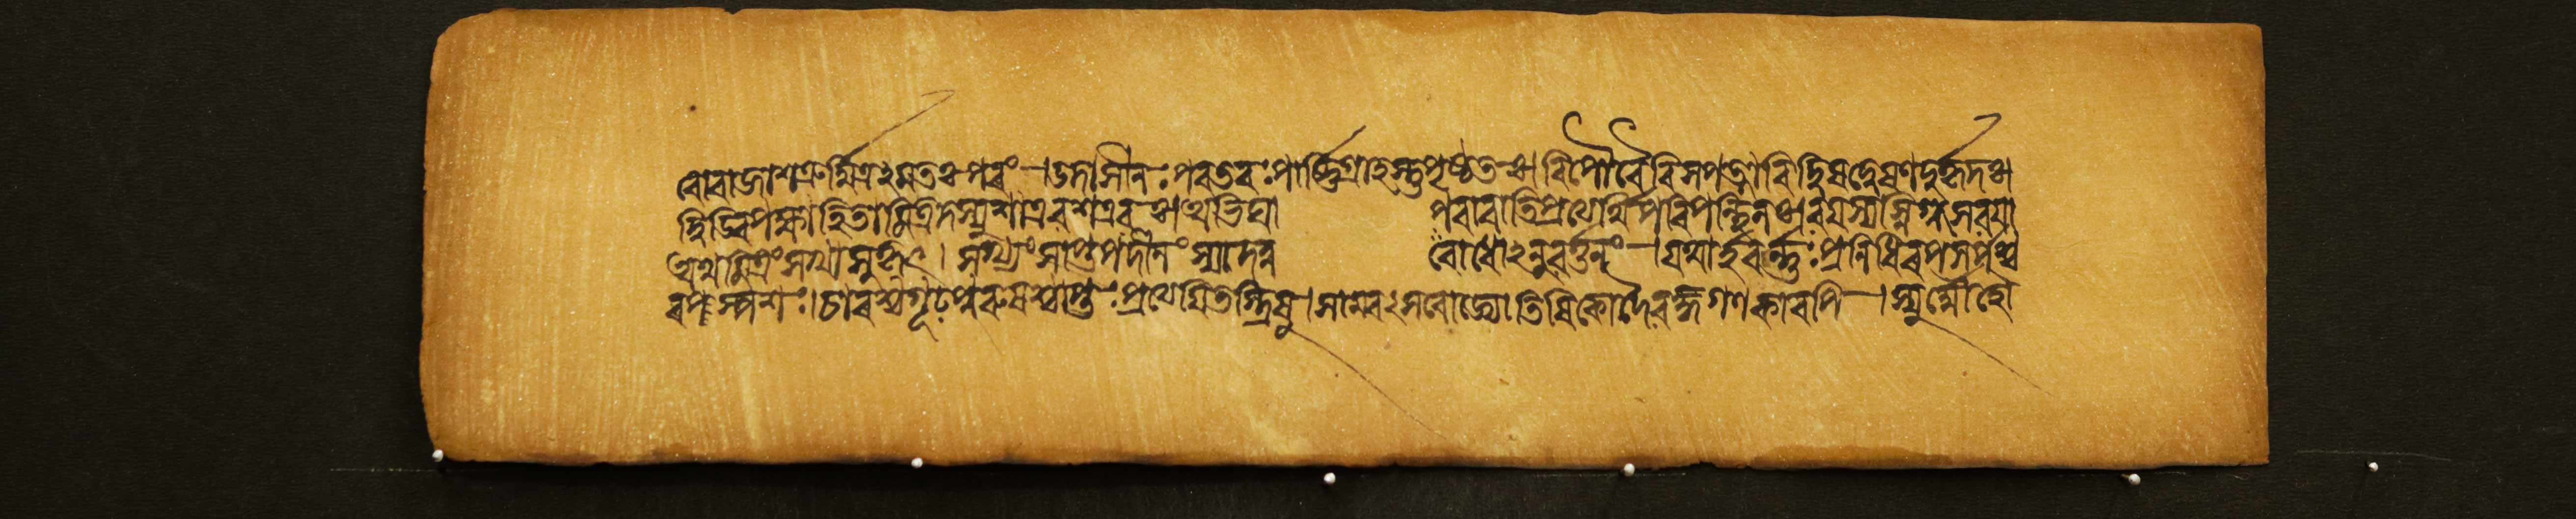 ৰোৰাজাশত্ৰুৰ্ম্মিত্ৰঽমতঃপৰং । উদাসীনঃপৰতৰঃপাৰ্ষ্ণিগ্ৰাহস্তুপৃষ্ঠতঃ। ৰিপৌবৈৰিসপত্নাৰিদ্বিষদ্বেষণদুৰ্হৃদঃ।
দ্বিড্বিপক্ষাহিতামিত্ৰদস্যুশাত্ৰবশত্ৰবঃ। অভিঘা পৰাৰাতিপ্ৰত্যৰ্থিপৰিপন্থিনঃ। বয়স্যঃস্নিগ্ধঃসবয়া
অথমিত্ৰংসখাসুহৃৎ। সখ্যংসাপ্তপদীনংস্যাদনু ৰোধোঽনুবৰ্ত্তনং । যথাৰ্হবৰ্ণ্ণঃপ্ৰণিধিৰপসৰ্পশ্চ
ৰঃস্পশঃ। চাৰশ্চগূঢপুৰুষশ্চাপ্তঃপ্ৰত্যয়িতস্ত্ৰিষু। সাম্বৎসৰোজ্যোতিষিকোদৈবজ্ঞগণকাবপি । স্যুৰ্ম্মৌহূ